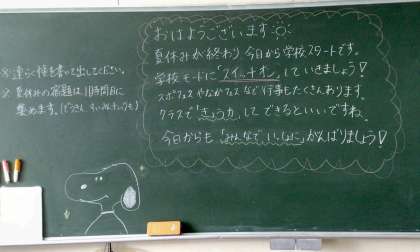 おはようございます
夏休みが終わり、今日から学校スタートです。
学校モードに「スイッチオン」していきましょう!
スポフェスやなかフェスなど行事もたくさんあります。
クラスで「きょう力」してできるといいですね。
今日からも「みんなでいっしょに」がんばりましょう!
※連らく帳を書いて出してください。
※夏休みの宿題は1時間目に
集めます。